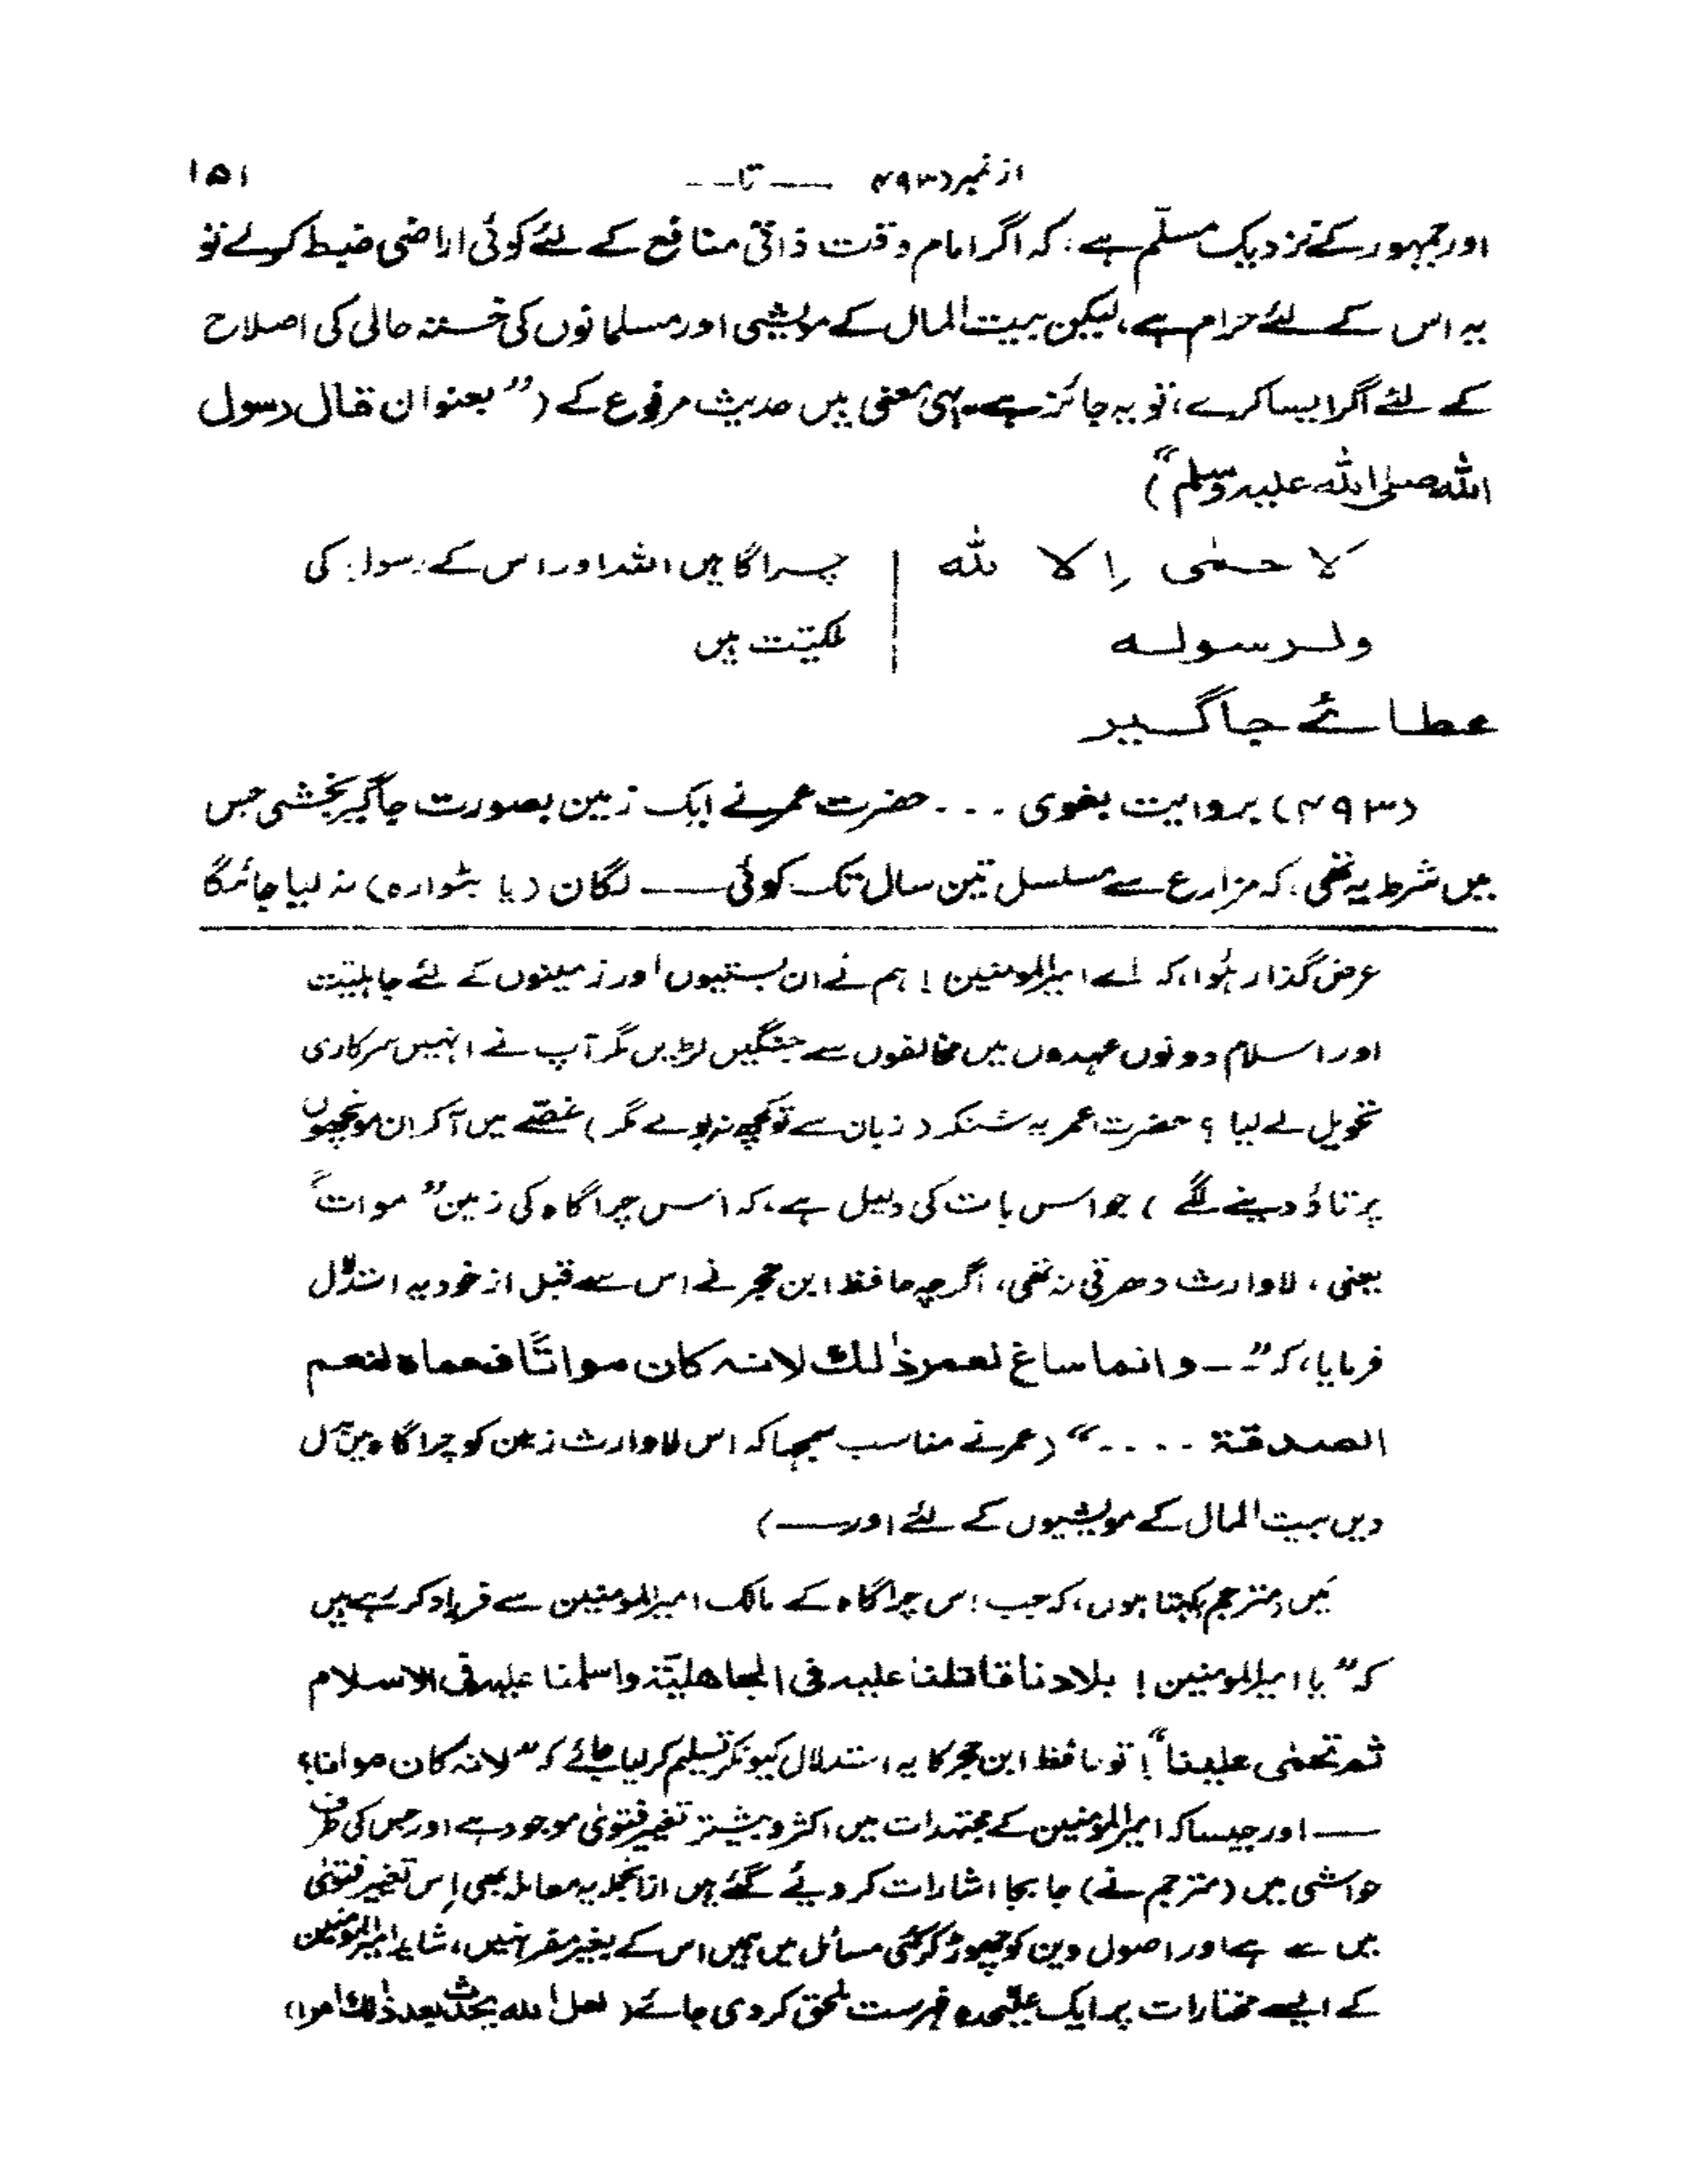 از نمبر (۴۹۳ —— تا -- ۱۵۱
اور جمہور کے نزدیک مسلّم ہے، کہ اگر امام وقت ذاتی منافع کے لئے کوئی اراضی ضبط کرلے تو
یہ اس کے لئے حرام ہے، لیکن بیت المال کے مویشی اور مسلمانوں کی خستہ حالی کی اصلاح
کے لئے اگر ایسا کرے، تو یہ جائز ہے۔ یہی معنی ہیں حدیث مرفوع کے (” بعنوان قال رسول
اللہ صلی اللہ علیہ وسلم“)
لا حمٰی اِلا للہ
ولرسولہ
چراگاہیں اللہ اور اس کے رسول کی
ملکیّت ہیں
عطائے جاگیر
(۴۹۳) بروایت بغوی ... حضرت عمر نے ایک زمین بصورت جاگیر بخشی جس
میں شرط یہ تھی، کہ مزارع سے مسلسل تین سال تک کوئی —— لگان (یا بٹوارہ) نہ لیا جائیگا
عرض گذار ہُوا، کہ اے امیر المومنین! ہم نے ان بستیوں اور زمینوں کے لئے جاہلیّت
اور اسلام دونوں عہدوں میں مخالفوں سے جنگیں لڑیں مگر آپ نے انہیں سرکاری
تحویل لے لیا؟ حضرت عمر یہ سُنکر (زبان سے تو کچھ نہ بولے مگر) غصّے میں آکر ان مونچھوں
پر تاؤ دینے لگے) جو اس بات کی دلیل ہے، کہ اس چراگاہ کی زمین ” موات“
یعنی، لاوارث دھرتی نہ تھی، اگرچہ حافظ ابن حجر نے اس سے قبل از خود یہ استدلال
فرمایا، کہ ”-- وانما ساغ لعمر ذٰلك لانہ كان مواتًا فحماہ لنعم
الصدقۃ ....“ (عمر نے مناسب سمجھا کہ اس لاوارث زمین کو چراگاہ میں
دیں بیت المال کے مویشیوں کے لئے اور——)
مَیں (مترجم) کہتا ہوں، کہ جب اس چراگاہ کے مالک امیر المومنین سے فریاد کر رہے ہیں
کہ ” یا امیر المومنین! بلادنا قاتلنا علیہ فی الجاھلیّۃ واسلمنا علیہ فی الاسلام
ثم تحمٰی علینا“! تو حافظ ابن حجر کا یہ استدلال کیونکر تسلیم کرلیا جائے کہ ”لانہ کان مواتا؟
—— اور جیسا کہ امیر المومنین کے مجتہدات میں اکثر و بیشتر تغیر فتویٰ موجود ہے اور جس کی طرف
حواشی میں (مترجم نے) جا بجا اشارات کر دیئے گئے ہیں ازانجملہ یہ معاملہ بھی اِس تغییر فتویٰ
میں سے ہے اور اصول دین کو چھوڑ کر کئی مسائل میں ہمیں اس کے بغیر مفر نہیں، شاید امیر المومنین
کے ایسے مختارات پر ایک علیٰحدہ فہرست ملحق کر دی جائے (لعل اللہ یحدث بعد ذٰلك امرا)